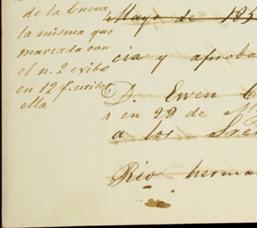 de la Cueva,
la misma que
marcada con
el n. 2 exibo
en 12 f. utiles
ella
Mayo de 185
cia y aproba
D. Ewen C
en 28 de M
a los Sres
Rio herma